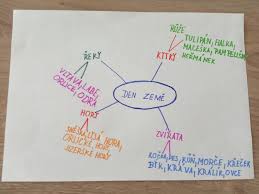 RŮŽE
TULIPÁN, FIALKA,
MACEŠKA, PAMPELIŠKA
HEŘMÁNEK
KITKY
ŘEKY
VLTAVA, LABE,
ORLICE, ODRA
DEN ZEMĚ
HORY
HORA,
ORLICKÉ HORY
JIZERSKÉ HORY
ZVÍŘATA
KOČKA, PES, KŮŇ, MORČE, KŘEČEK
BÍK, KRÁVA, KRÁLÍK, OVCE